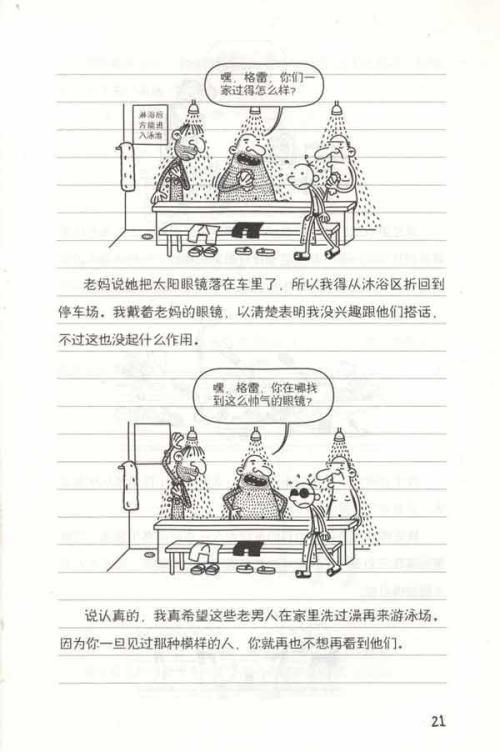 嘿，格雷，你们一
家过得怎么样？
淋浴后
方能进
入泳池
老妈说她把太阳眼镜落在车里了，所以我得从沐浴区折回到
停车场。我戴着老妈的眼镜，以清楚表明我没兴趣跟他们搭话，
不过这也没起什么作用。
嘿，格雷，你在哪找
到这么帅气的眼镜？
说认真的，我真希望这些老男人在家里洗过澡再来游泳场。
因为你一旦见过那种模样的人，你就再也不想再看到他们。
21